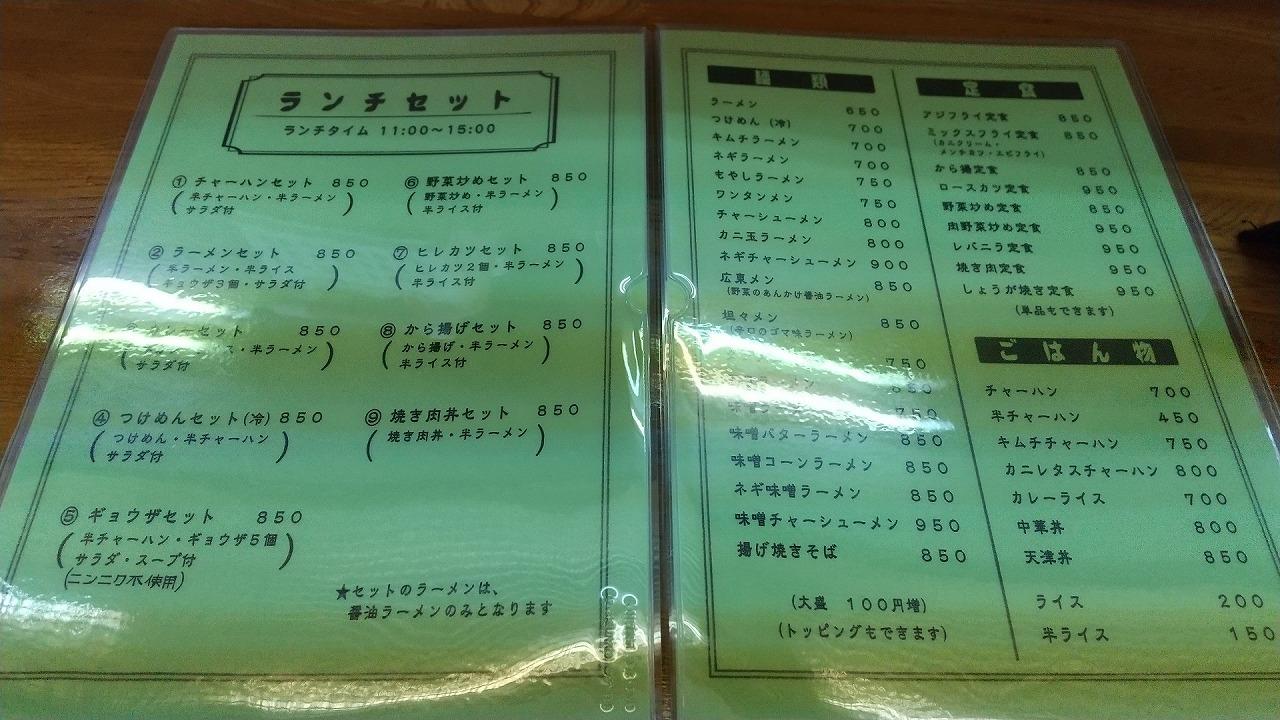 ランチセット
ランチタイム 11:00～15:00
① チャーハンセット 850
(半チャーハン・半ラーメン
サラダ付)
② ラーメンセット 850
(半ラーメン・半ライス
ギョウザ3個・サラダ付)
セット 850
・半ラーメン
サラダ付)
④ つけめんセット(冷) 850
(つけめん・半チャーハン
サラダ付)
⑤ ギョウザセット 850
(半チャーハン・ギョウザ5個
サラダ・スープ付)
(ニンニク不使用)
⑥ 野菜炒めセット 850
(野菜炒め・半ラーメン
半ライス付)
⑦ ヒレカツセット 850
(ヒレカツ2個・半ラーメン
半ライス付)
⑧ から揚げセット 850
(から揚げ・半ラーメン
半ライス付)
⑨ 焼き肉丼セット 850
(焼き肉丼・半ラーメン)
★セットのラーメンは、
醤油ラーメンのみとなります
麺類
ラーメン 650
つけめん (冷) 700
キムチラーメン 700
ネギラーメン 700
もやしラーメン 750
ワンタンメン 750
チャーシューメン 800
カニ玉ラーメン 800
ネギチャーシューメン 900
広東メン 850
(野菜のあんかけ醤油ラーメン)
坦々メン 850
(辛口のゴマ味ラーメン)
750
850
味噌ラーメン 750
味噌バターラーメン 850
味噌コーンラーメン 850
ネギ味噌ラーメン 850
味噌チャーシューメン 950
揚げ焼きそば 850
(大盛 100円増)
(トッピングもできます)
定食
アジフライ定食 850
ミックスフライ定食 850
(カニクリーム・
メンチカツ・エビフライ)
から揚定食 850
ロースカツ定食 950
野菜炒め定食 850
肉野菜炒め定食 950
レバニラ定食 950
焼き肉定食 950
しょうが焼き定食 950
(単品もできます)
ごはん物
チャーハン 700
半チャーハン 450
キムチチャーハン 750
カニレタスチャーハン 800
カレーライス 700
中華丼 800
天津丼 850
ライス 200
半ライス 150